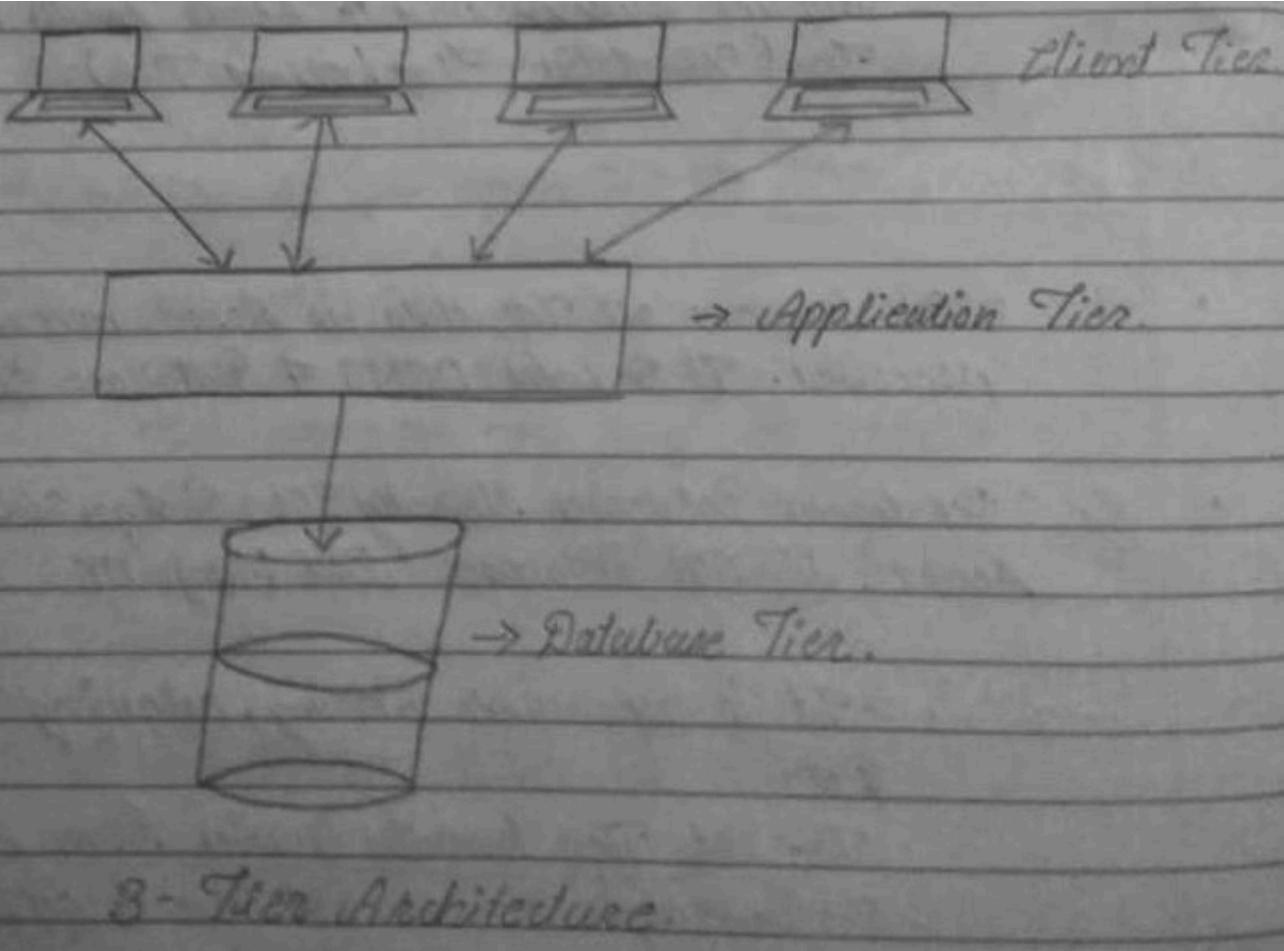 Client Tier
→ Application Tier
→ Database Tier.
3- Tier Architecture